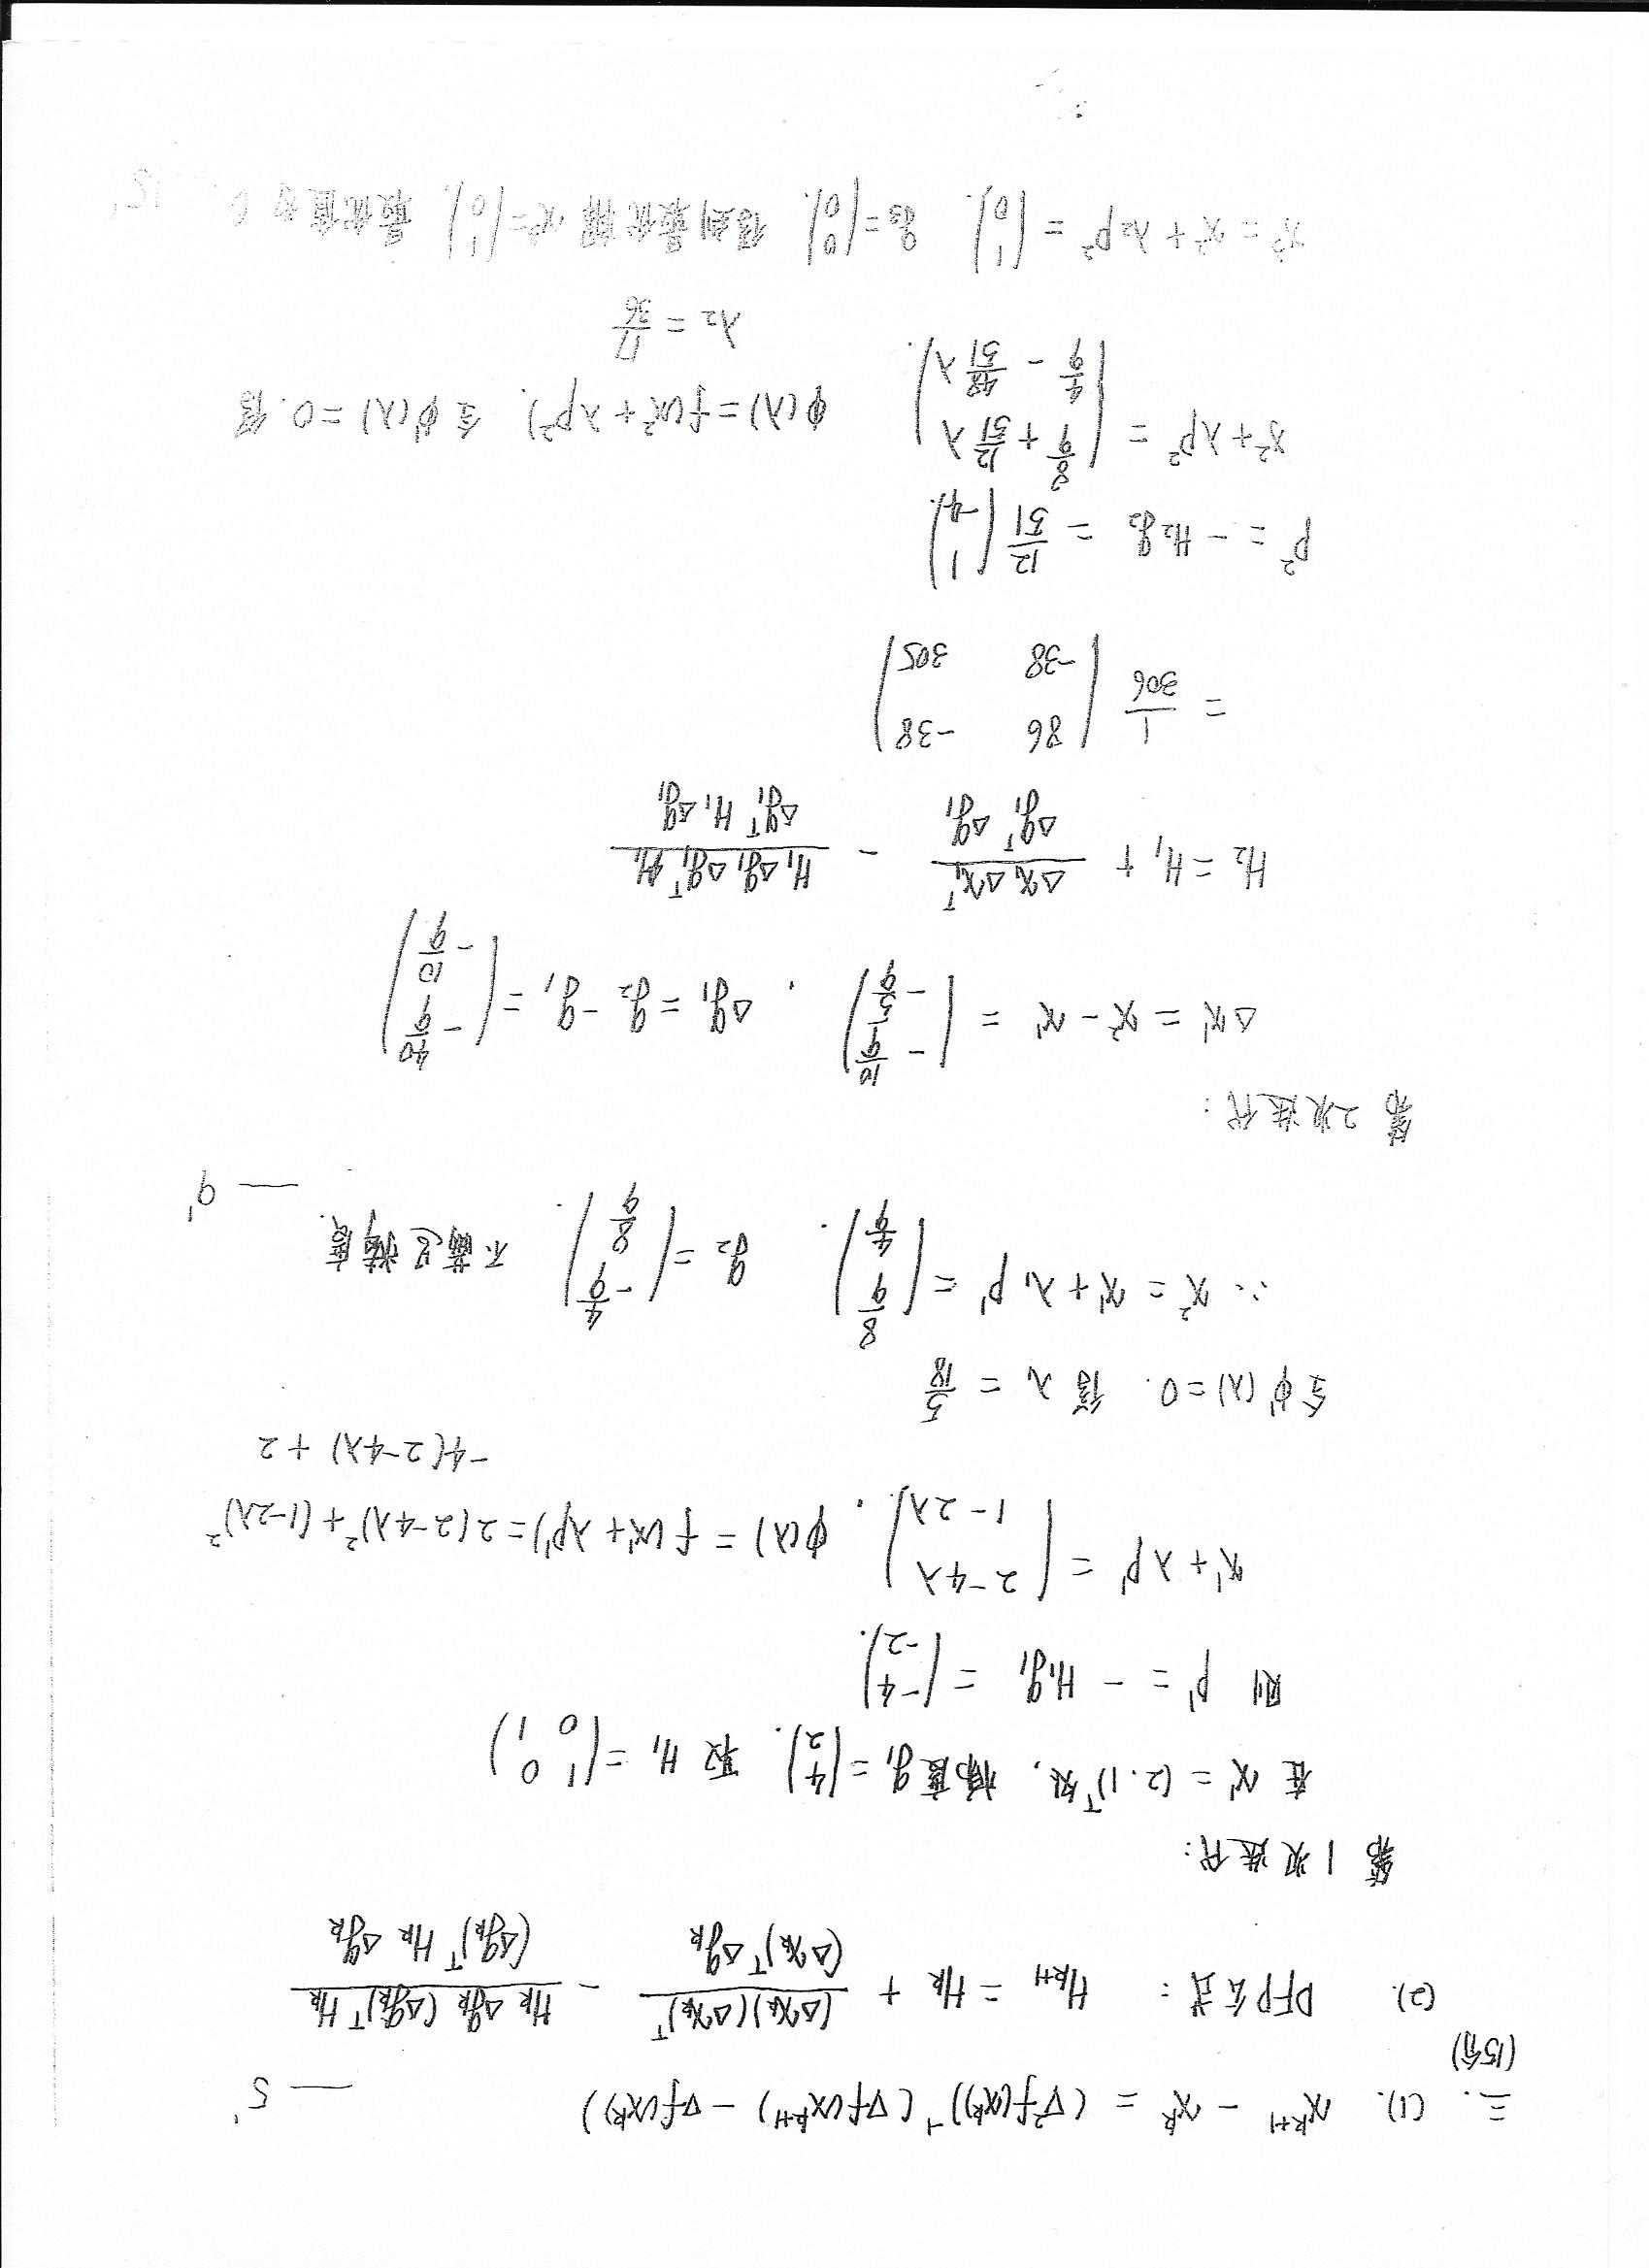 三. (1). x^{k+1} - x^k = (∇²f(x^k))^{-1} (∇f(x^{k+1}) - ∇f(x^k)) — 5'
(15分)
(2). DFP公式: H_{k+1} = H_k + \frac{(Δx_k)(Δx_k)^T}{(Δx_k)^T Δg_k} - \frac{H_k Δg_k (Δg_k)^T H_k}{(Δg_k)^T H_k Δg_k}
第1次迭代:
在 x^1 = (2.1)^T处, 梯度 g_1 = (4 2). 取 H_1 = (1 0 0 1)
则 p^1 = - H_1g_1 = (-4 -2).
x^1 + λp^1 = (2-4λ 1-2λ). φ(λ) = f(x^1+λp^1) = 2(2-4λ)² + (1-2λ)²
-4(2-4λ) + 2
令φ'(λ)=0. 得 λ_1 = 5/18
∴ x^2 = x^1 + λ_1 p^1 = (8/9 4/9). g_2 = (-4/9 8/9). 不满足精度. — 9'
第2次迭代:
Δx^1 = x^2 - x^1 = (-10/9 -5/9), Δg_1 = g_2 - g_1 = (-40/9 -10/9)
H_2 = H_1 + \frac{Δx_1 Δx_1^T}{Δg_1^T Δg_1} - \frac{H_1 Δg_1 Δg_1^T H_1}{Δg_1^T H_1 Δg_1}
= 1/306 (86 -38 -38 305)
p^2 = - H_2 g_2 = 12/51 (1 -4).
x^2 + λp^2 = (8/9 + 12/51 λ 4/9 - 48/51 λ). φ(λ) = f(x^2+λp^2). 令φ'(λ)=0. 得
λ_2 = 17/36
x^3 = x^2 + λ_2p^2 = (1 0). g_3 = (0 0). 得到最优解 x^* = (1 0) 最优值为 0. 15'